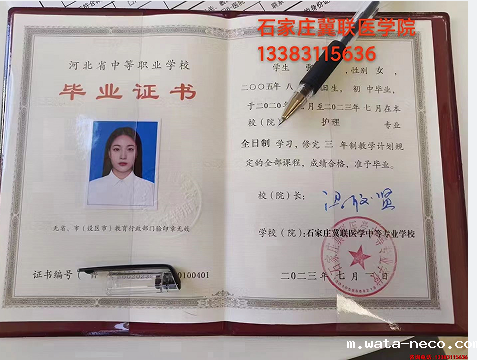 石家庄冀联医学院
13383115636
河北省中等职业学校
毕业证书
无省、市(设区市)教育行政部门验印章无效
证书编号(
0100401
学生 性别 女,
二〇〇五年 八 日生, 初中毕业,
于二〇二〇年 月至二〇二三年 七月在本
校(院) 护理 专业
全日制 学习,修完 三 年制教学计划规
定的全部课程,成绩合格,准予毕业。
校(院)长:
学校(院):石家庄冀联医学中等专业学校
二〇二三年 七月 日
m.wata-neco.com